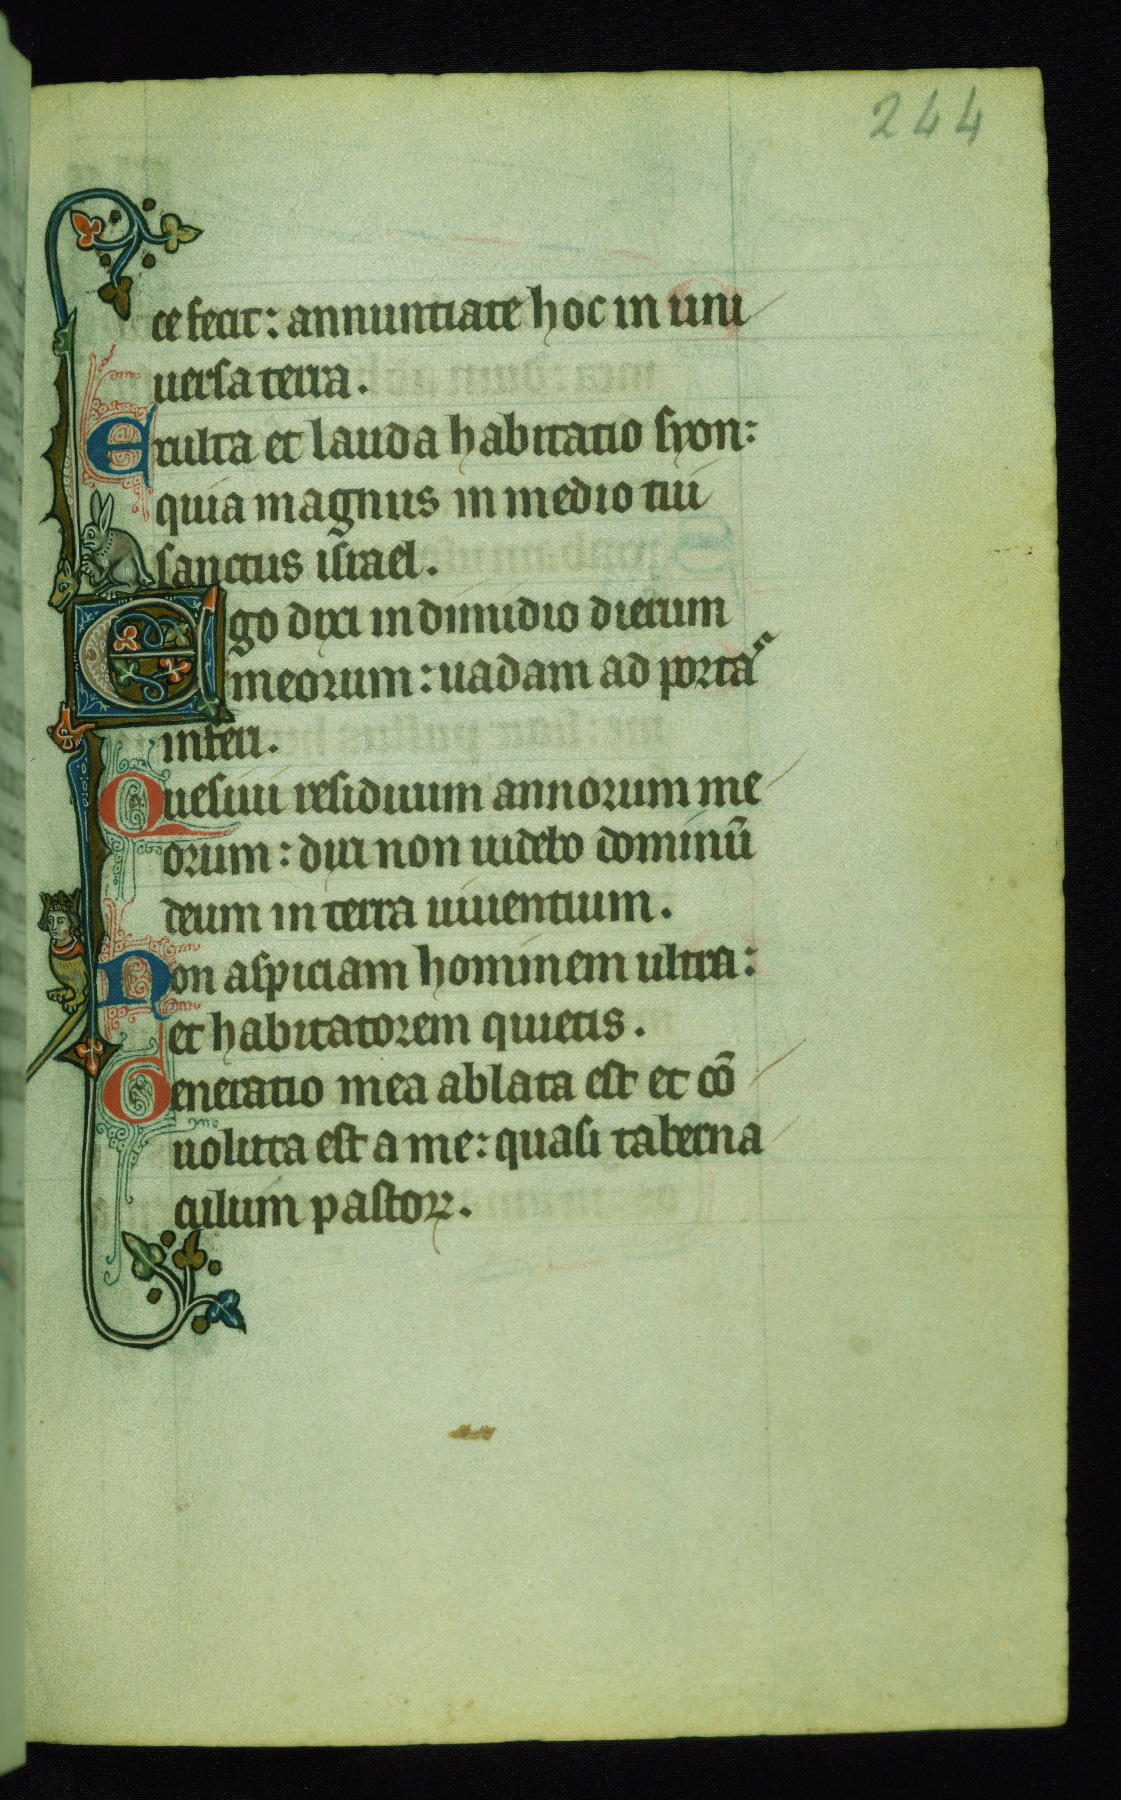 244
ce fecit: annuntiate hoc in uni
uersa terra.
Exulta et lauda habitatio syon:
quia magnus in medio tui
sanctus israel.
Ego dixi in dimidio dierum
meorum: uadam ad portas
inferi.
Quesiui residuum annorum me
orum: dixi non uidebo dominū
deum in terra uiuentium.
Non aspiciam hominem ultra:
et habitatorem quietis.
Generatio mea ablata est et cō
uoluta est a me: quasi taberna
culum pastoꝝ.